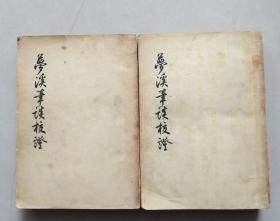 夢溪筆談校證
夢溪筆談校證